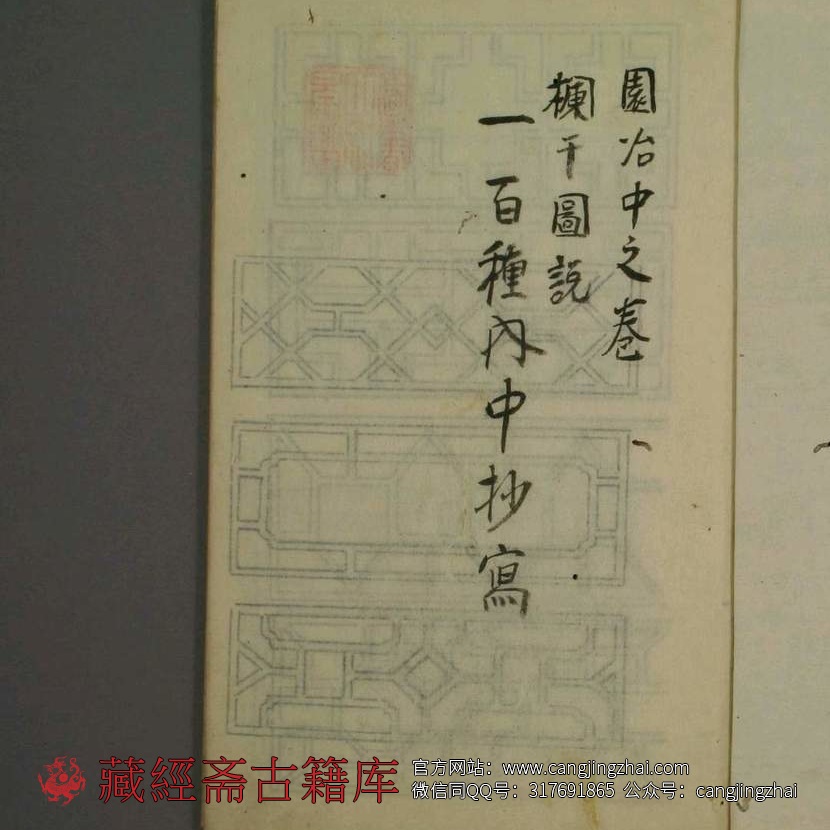 園冶中之卷
欄干圖説
一百種內中抄寫
藏經斋古籍库
官方网站：www.cangjingzhai.com
微信同QQ号：317691865 公众号：cangjingzhai